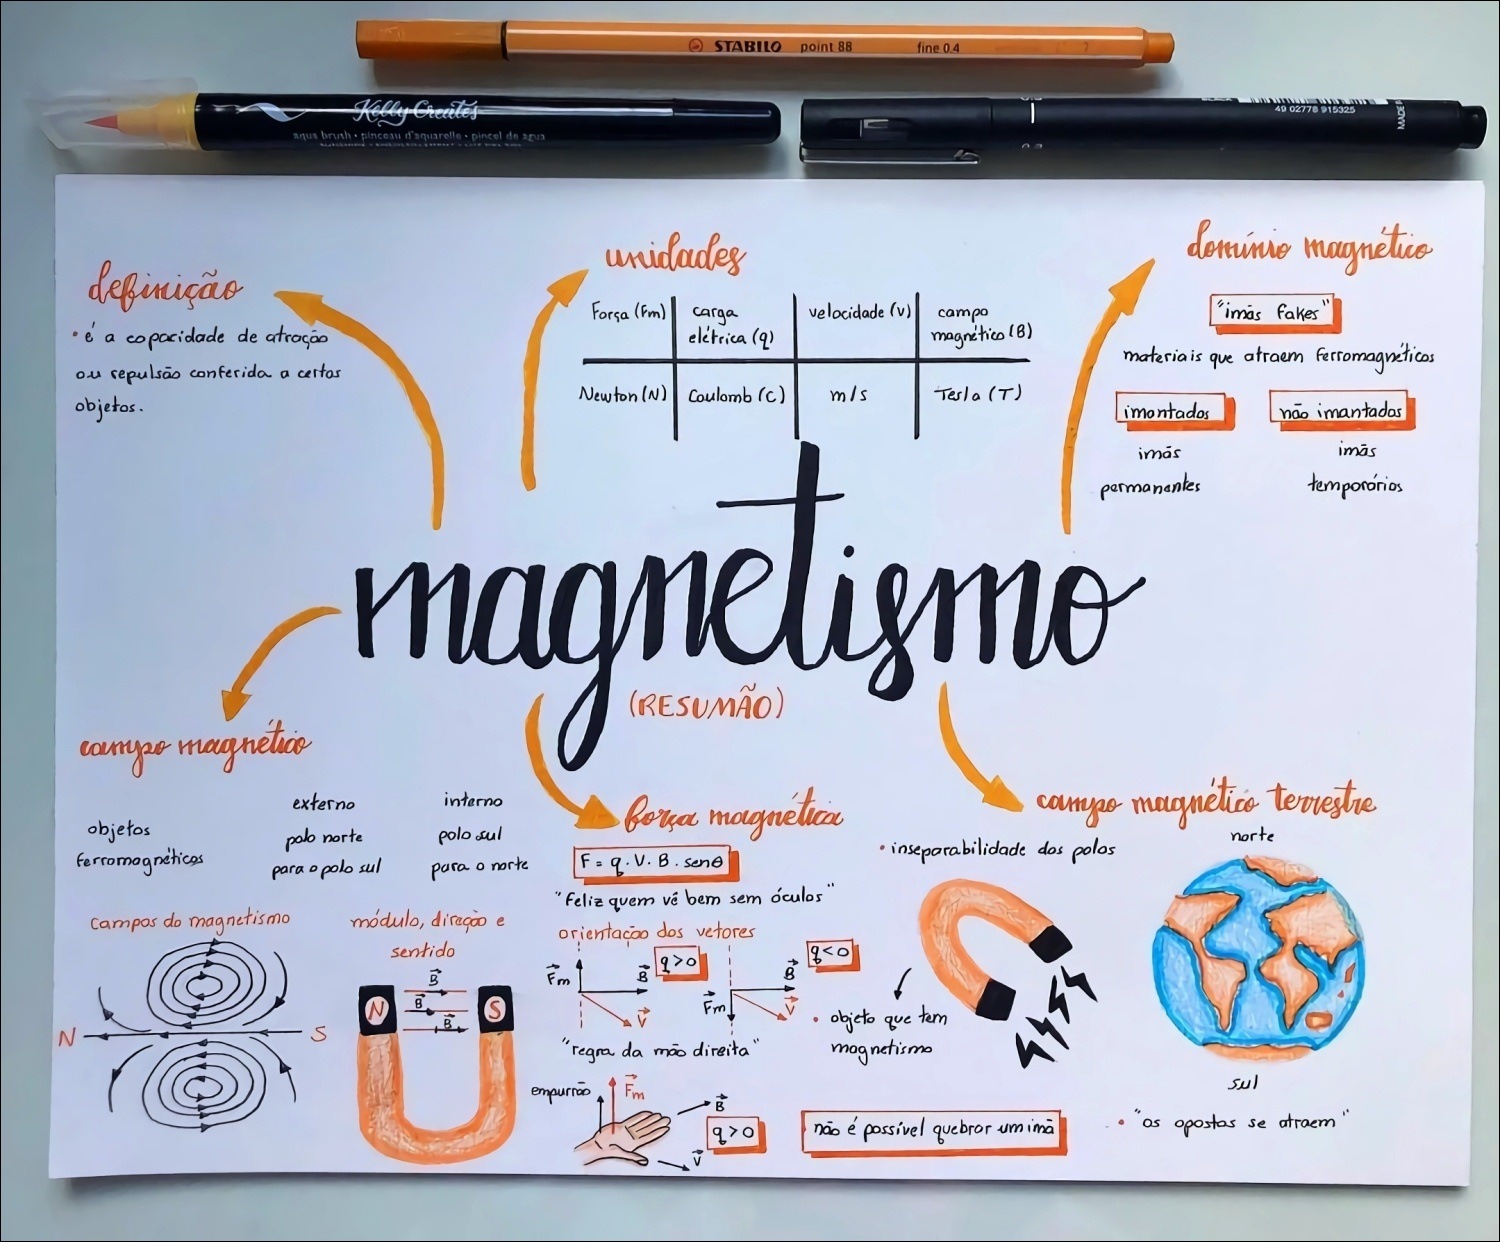 STABILO point 88 fine 0.4
Kelly Creates
aqua brush • pinceau d'aquarelle • pincel de agua
BLACK
49 02778 915325
definição
• é a capacidade de atração
ou repulsão conferida a certos
objetos.
unidades
Força (Fm) carga elétrica (q) velocidade (v) campo magnético (B)
Newton (N) Coulomb (C) m/s Tesla (T)
domínio magnético
"imãs fakes"
materiais que atraem ferromagnéticos
imantados não imantados
imãs imãs
permanentes temporários
magnetismo
(RESUMÃO)
campo magnético
objetos
ferromagnéticos
externo
polo norte
para o polo sul
interno
polo sul
para o norte
campos do magnetismo
N S
módulo, direção e
sentido
N S
B
B
B
força magnética
F = q . V . B . senθ
"Feliz quem vê bem sem óculos"
orientação dos vetores
q>0
Fm B V
q<0
B Fm V
"regra da mão direita"
empurrão Fm
B
q>0
V
campo magnético terrestre
• inseparabilidade dos polos
• objeto que tem
magnetismo
não é possível quebrar um imã
norte
sul
• "os opostos se atraem"